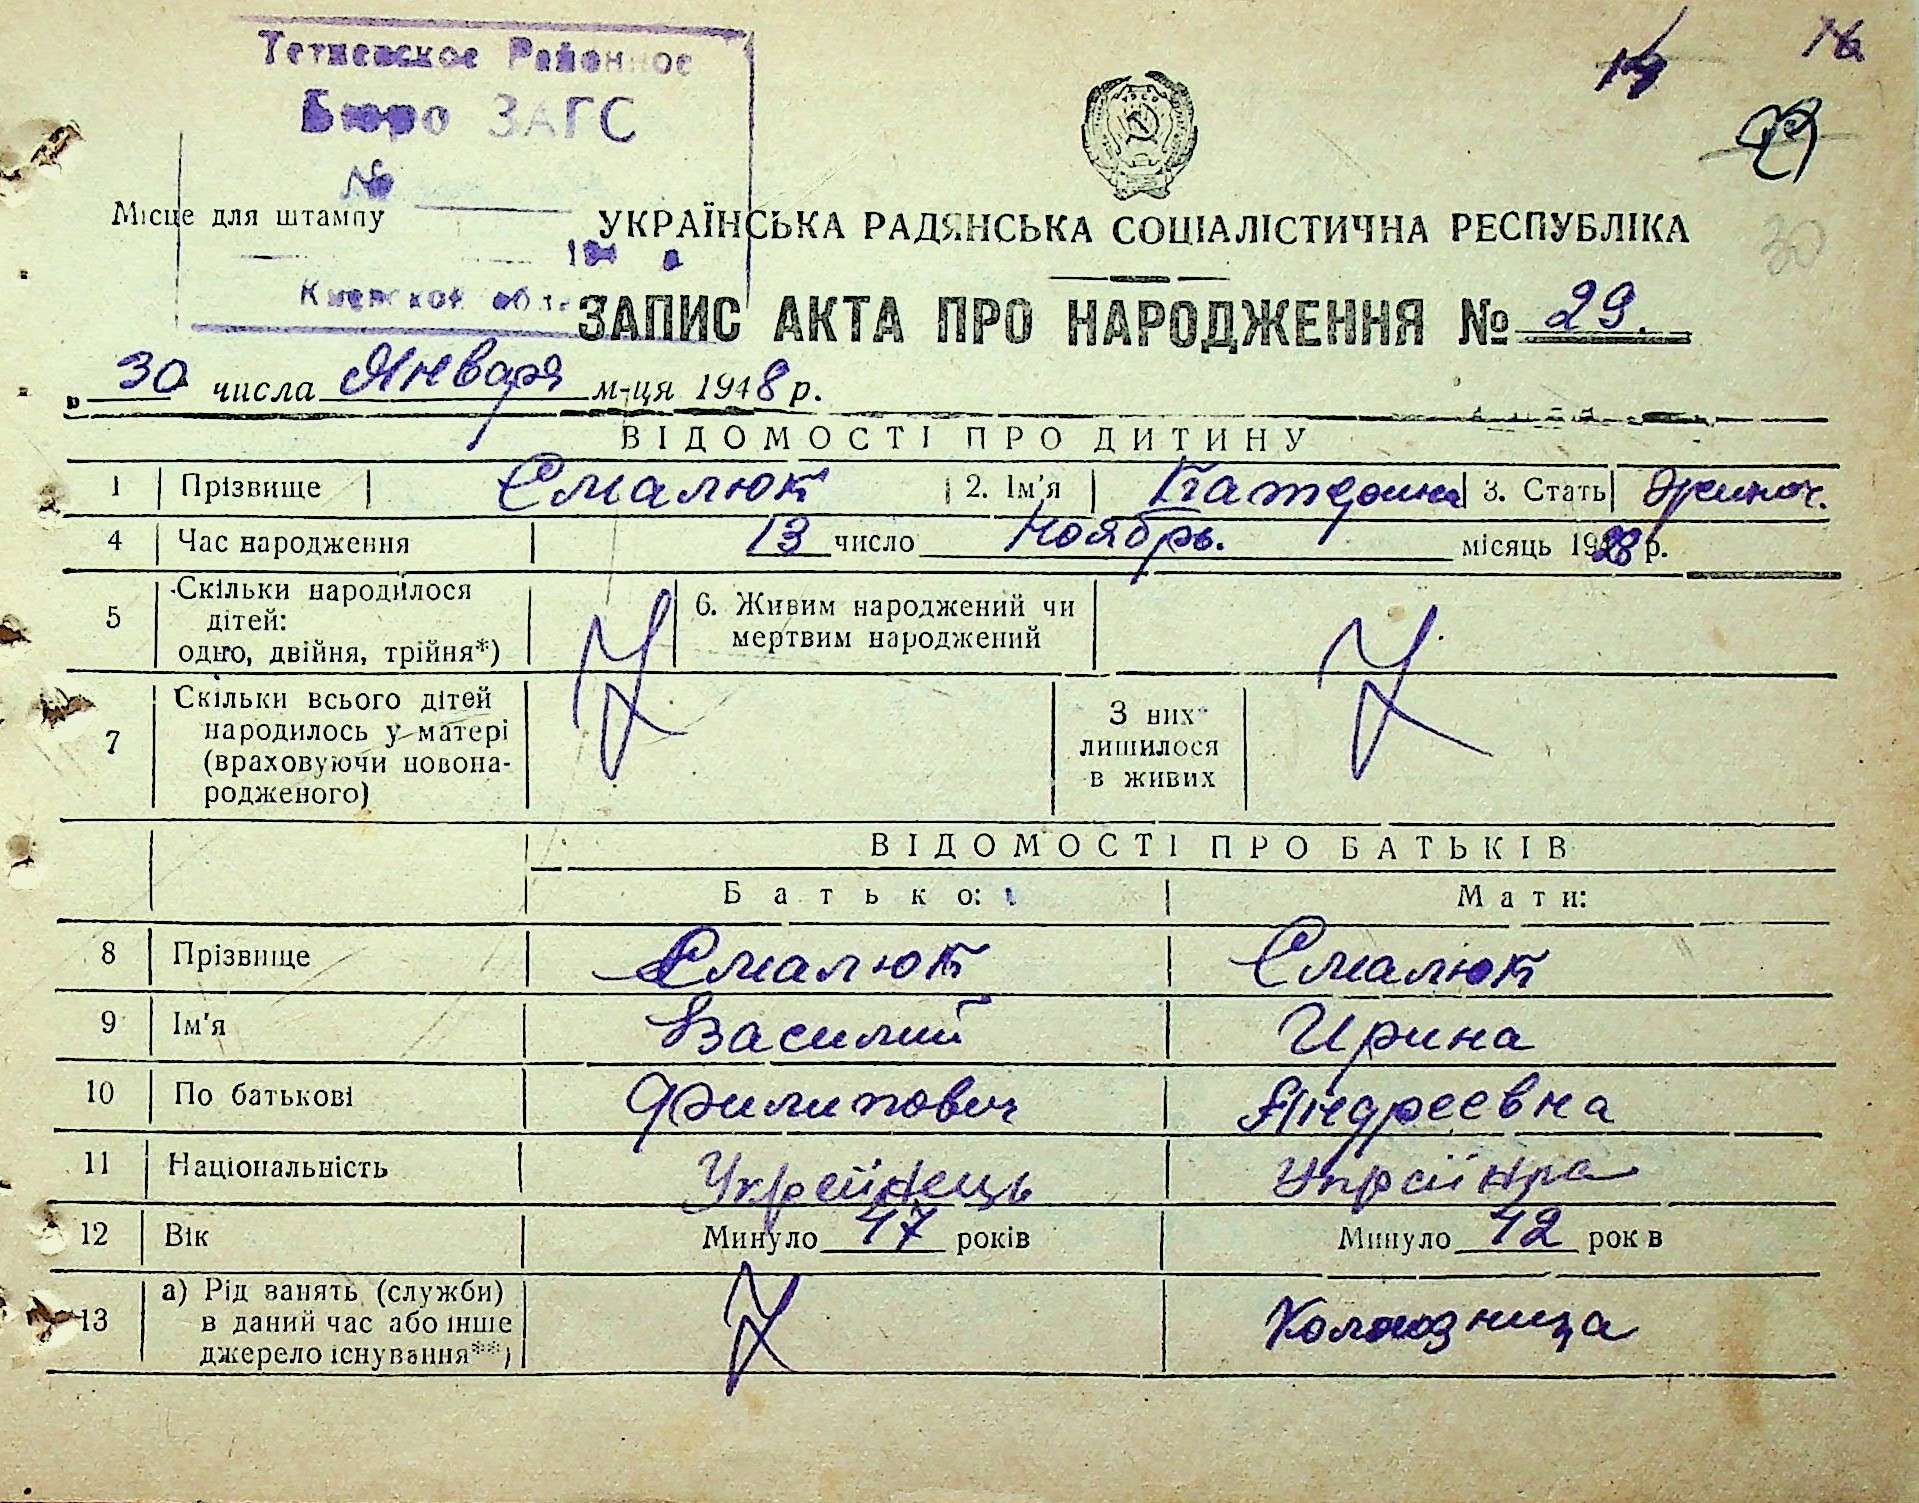 Тетиевское Районное
Бюро ЗАГС
№
Місце для штампу
194 г
Киевской обл.
14
16
29
30
УКРАЇНСЬКА РАДЯНСЬКА СОЦІАЛІСТИЧНА РЕСПУБЛІКА
ЗАПИС АКТА ПРО НАРОДЖЕННЯ № 29.
30 числа Января м-ця 1948 р.
ВІДОМОСТІ ПРО ДИТИНУ
1 Прізвище Смалюк 2. Ім'я 3. Стать
4 Час народження 13 число Ноябрь. місяць 1928 р.
5 Скільки народилося дітей: одно, двійня, трійня*) 6. Живим народжений чи мертвим народжений
7 Скільки всього дітей народилось у матері (враховуючи новонародженого) З них лишилося в живих
ВІДОМОСТІ ПРО БАТЬКІВ
Батько: Мати:
8 Прізвище Смалюк Смалюк
9 Ім'я Василий Ирина
10 По батькові Филипович Андреевна
11 Національність Українець Українка
12 Вік Минуло 47 років Минуло 42 рок в
13 а) Рід занять (служби) в даний час або інше джерело існування**) Колхозница